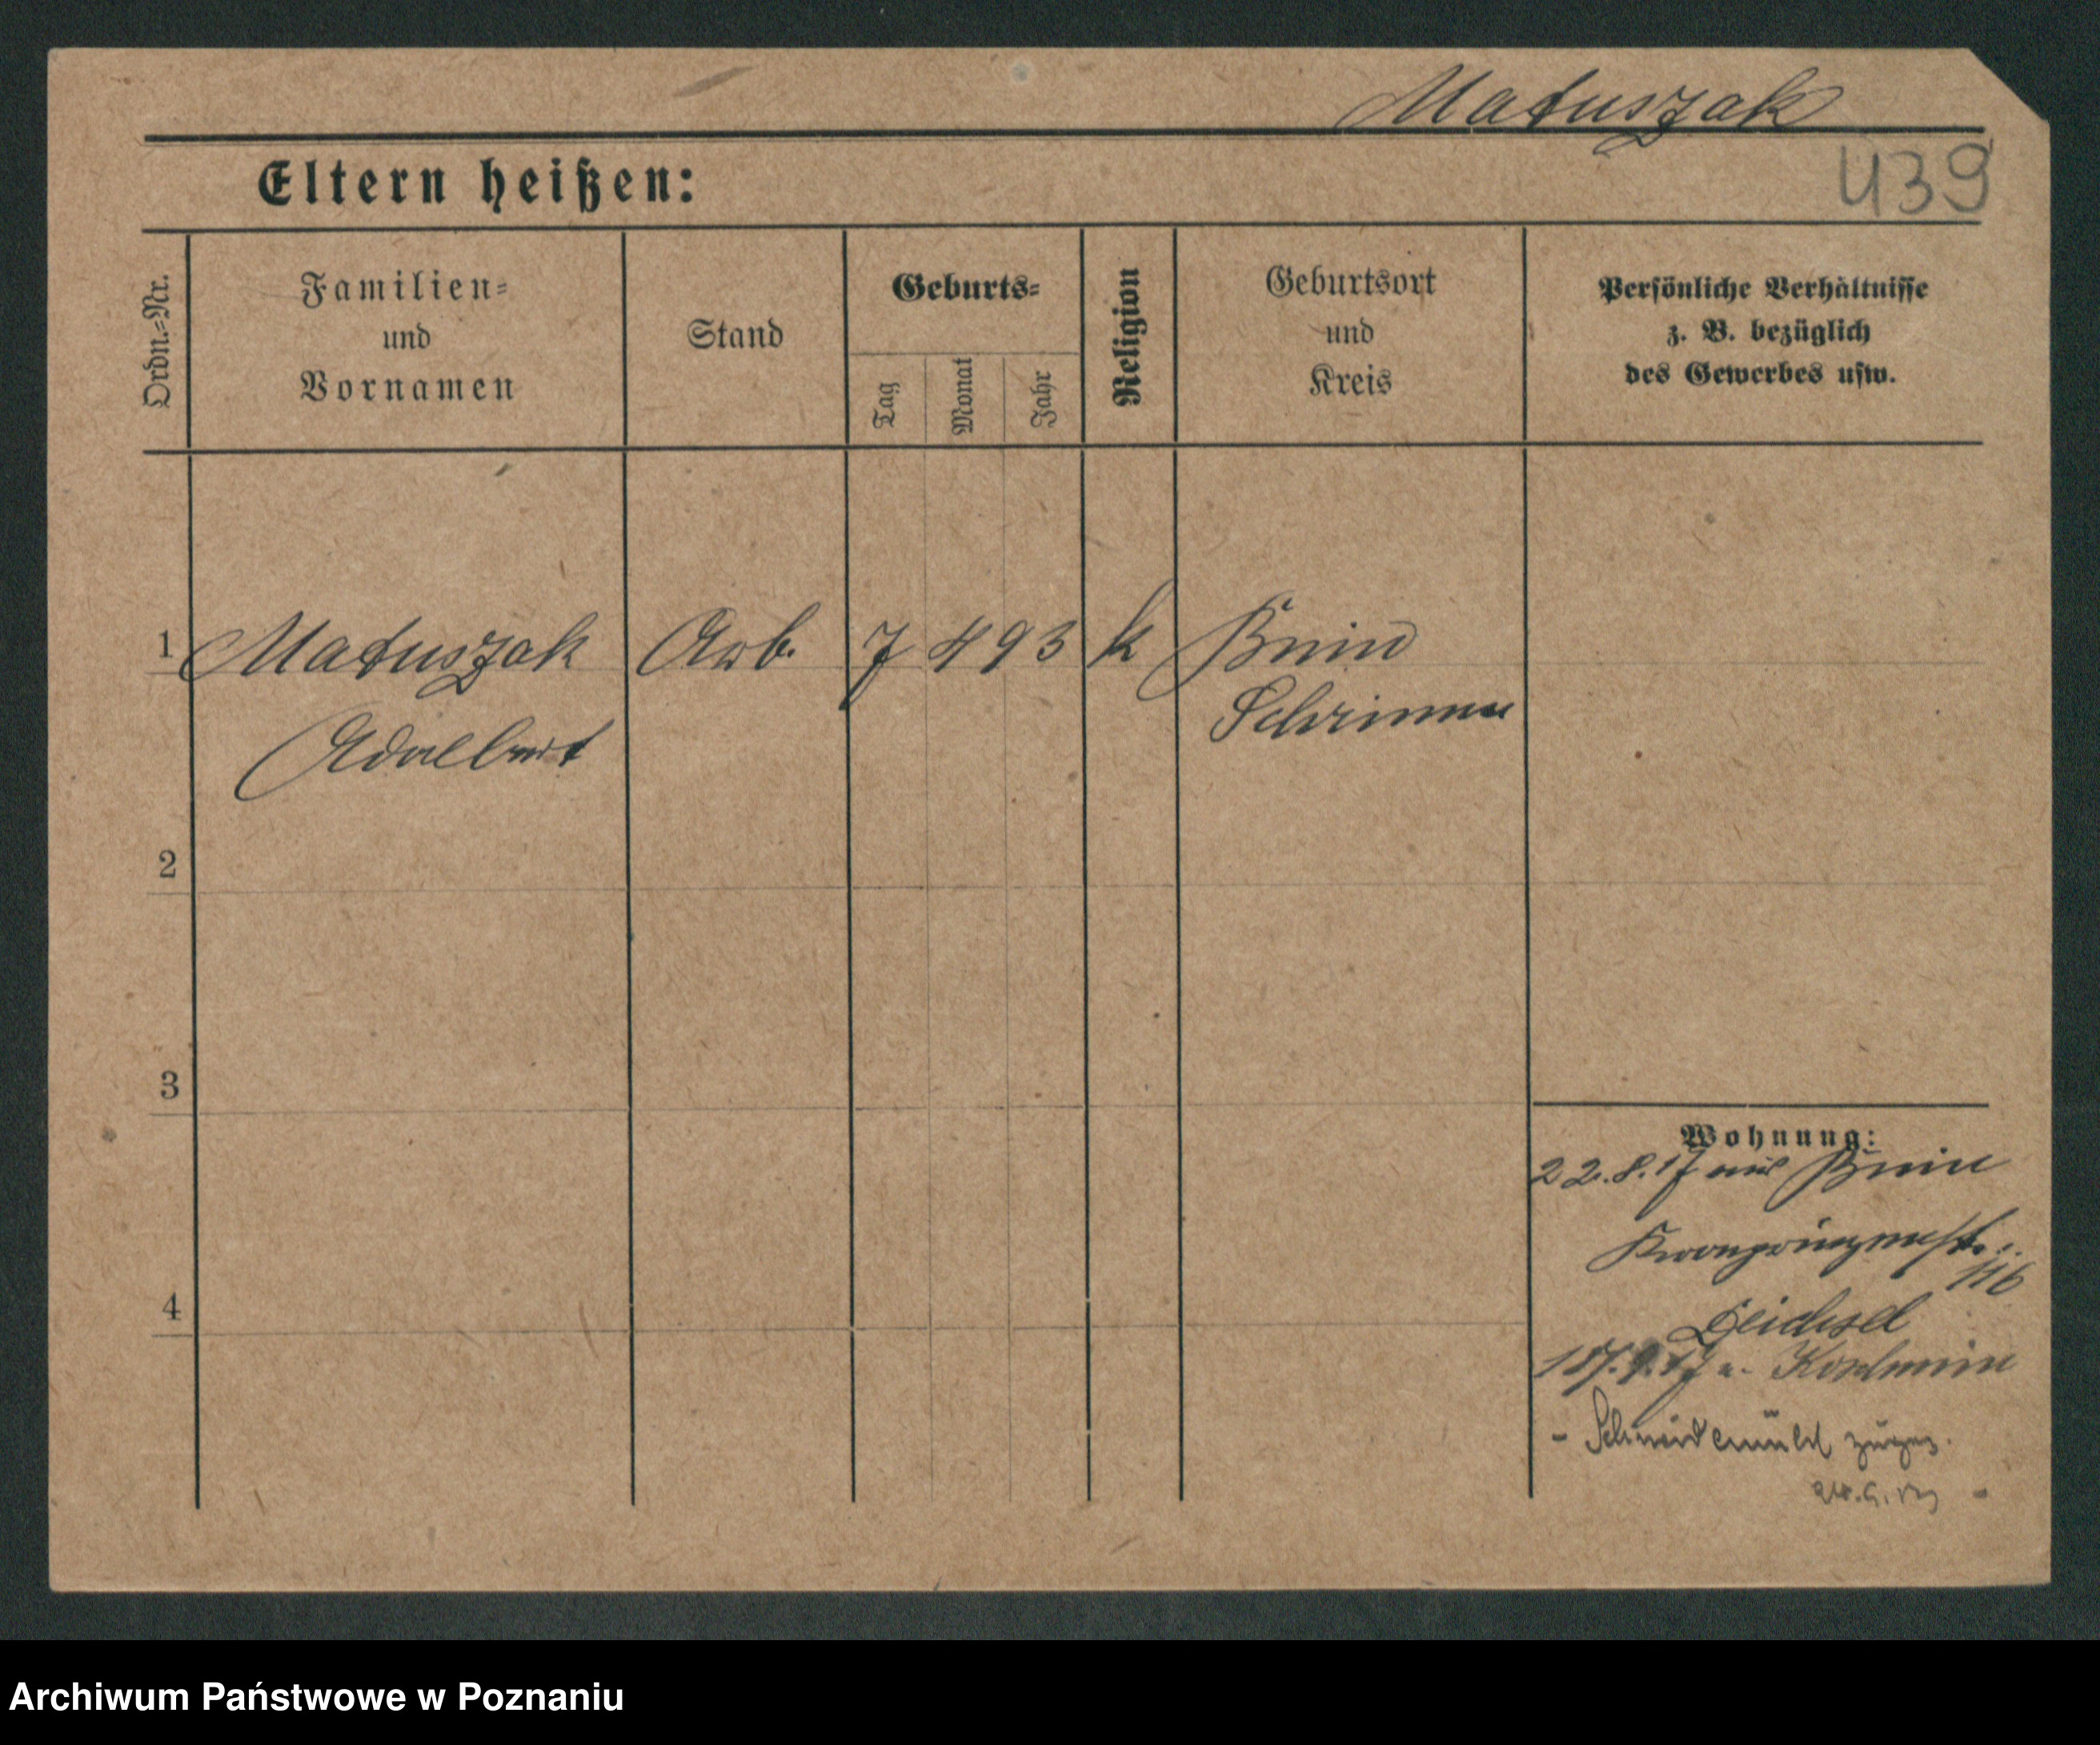 Matuszak
439
Eltern heißen:
Ordn.=Nr.
Familien=
und
Vornamen
Stand
Geburts=
Tag
Monat
Jahr
Religion
Geburtsort
und
Kreis
Persönliche Verhältnisse
z. B. bezüglich
des Gewerbes usw.
1 Matuszak Arb. 7 4 93 k Bnin
Adalbert Schrimm
2
3
4
Wohnung:
22.8.17 aus Bnin
Kronprinzenstr.
116
Deichsel
9.17 n. Koschmin
- Schneidemühl zugez.
Archiwum Państwowe w Poznaniu